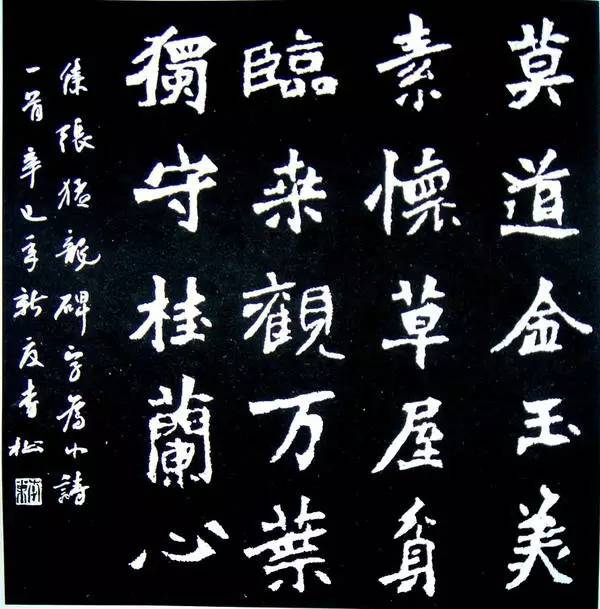 莫道金玉美
素懷草屋貧
臨来觀万葉
獨守桂蘭心
集張猛龍碑字為小詩
一首辛巳年新夏李松